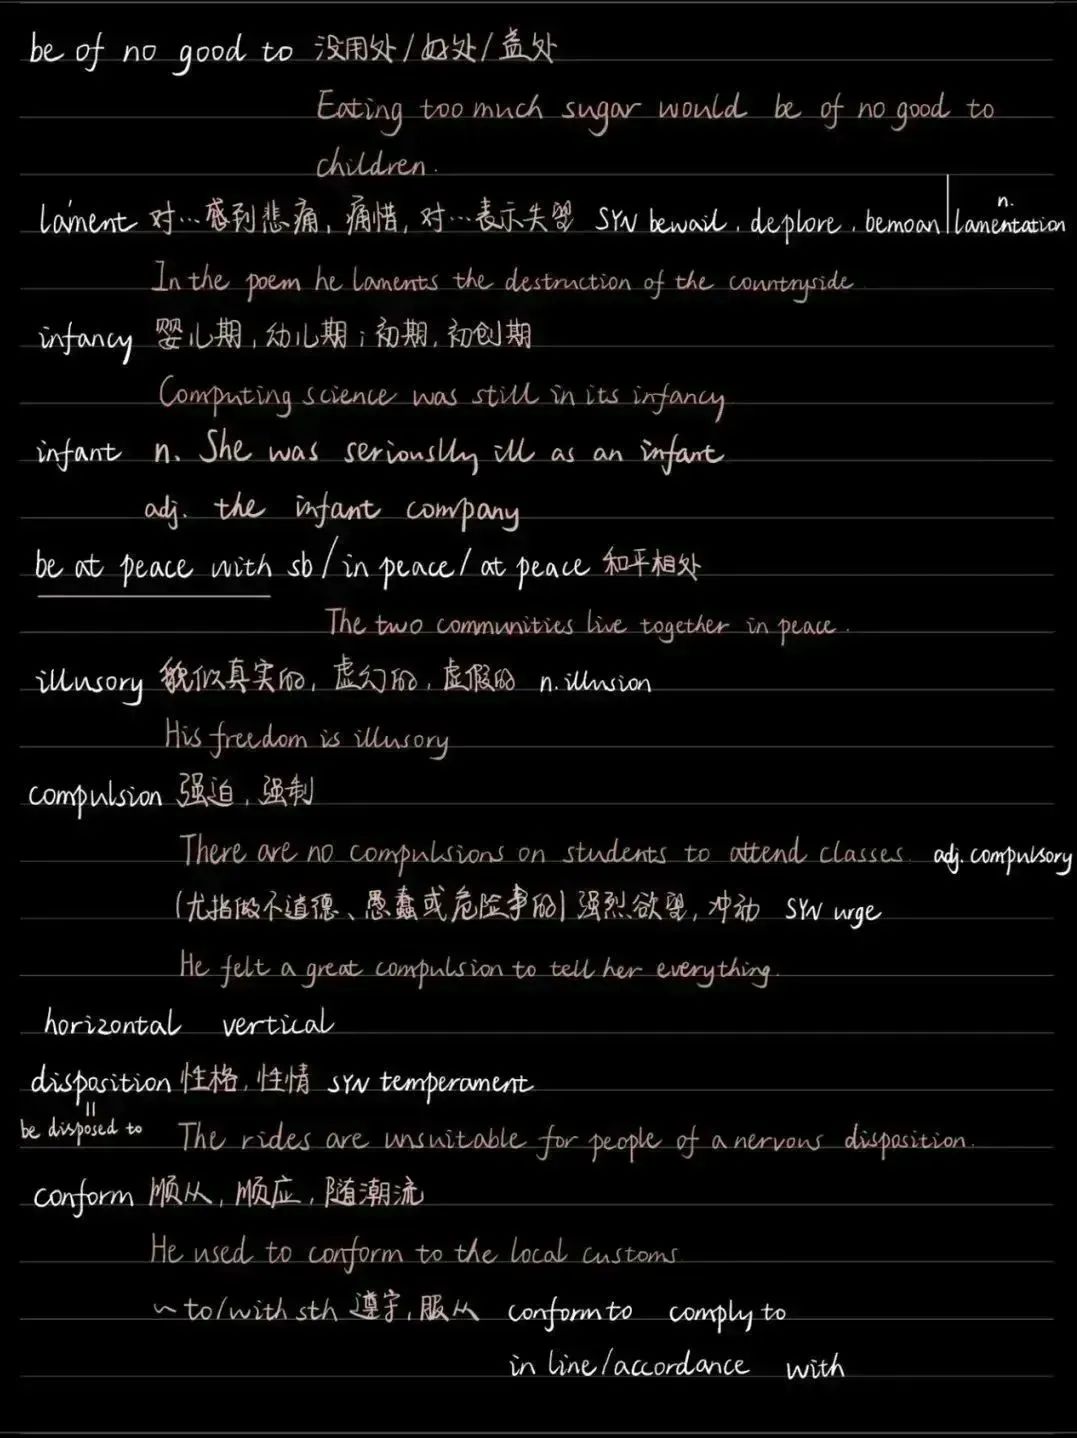 be of no good to 没用处/好处/益处
Eating too much sugar would be of no good to
children.
lament 对…感到悲痛, 痛惜, 对…表示失望 SYN bewail, deplore, bemoan | n. lamentation
In the poem he laments the destruction of the countryside
infancy 婴儿期, 幼儿期; 初期, 初创期
Computing science was still in its infancy
infant n. She was seriouslly ill as an infant
adj. the infant company
be at peace with sb/in peace/at peace 和平相处
The two communities live together in peace.
illusory 貌似真实的, 虚幻的, 虚假的 n. illusion
His freedom is illusory
compulsion 强迫, 强制
There are no compulsions on students to attend classes. adj. compulsory
(尤指做不道德、愚蠢或危险事的) 强烈欲望, 冲动 SYN urge
He felt a great compulsion to tell her everything.
horizontal vertical
disposition 性格, 性情 SYN temperament
=
be disposed to The rides are unsuitable for people of a nervous disposition.
conform 顺从, 顺应, 随潮流
He used to conform to the local customs
~ to/with sth 遵守, 服从 conform to comply to
in line/accordance with